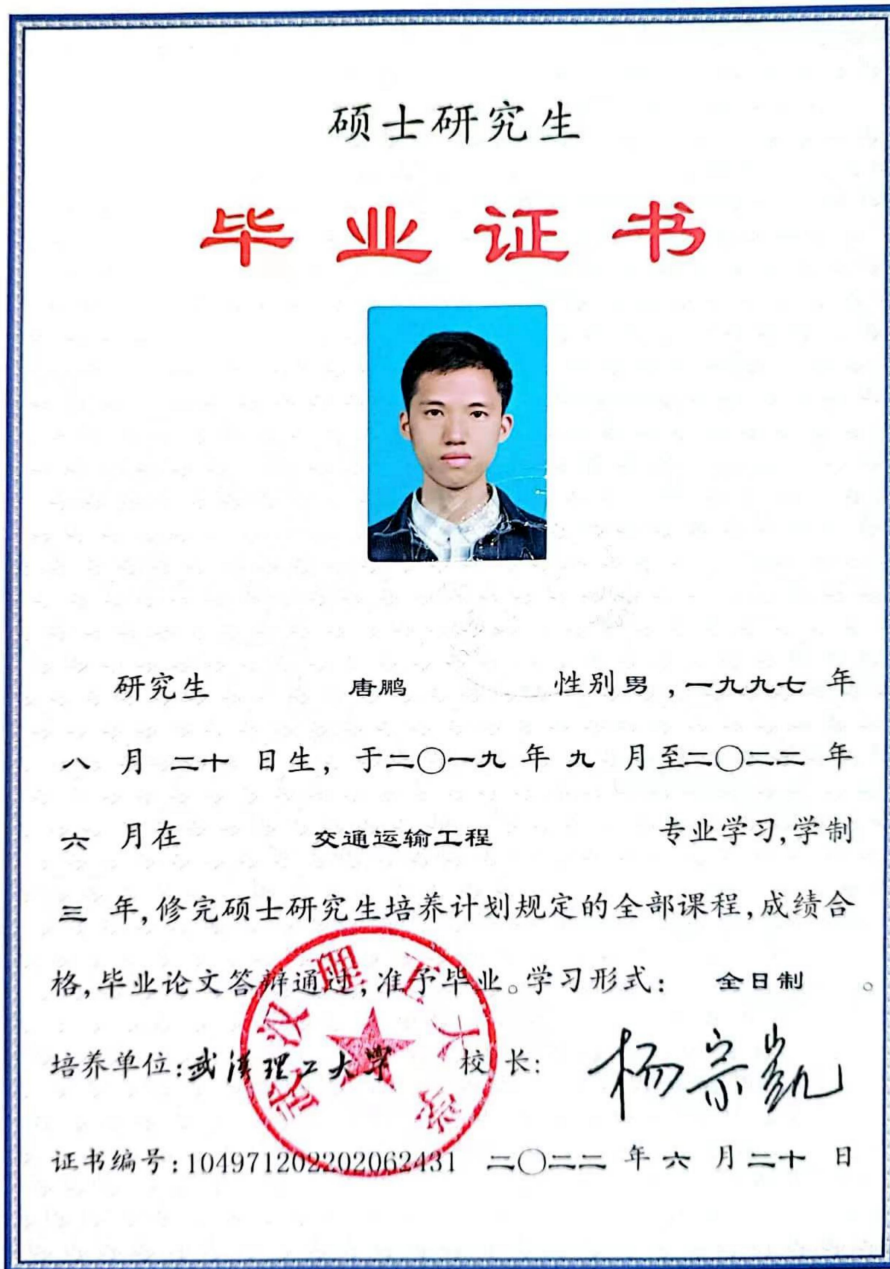 硕士研究生
毕业证书
研究生 唐鹏 性别 男 ,一九九七 年
八 月 二十 日生, 于二〇一九 年 九 月至二〇二二 年
六 月在 交通运输工程 专业学习,学制
三 年,修完硕士研究生培养计划规定的全部课程,成绩合
格,毕业论文答辩通过,准予毕业。学习形式: 全日制 。
培养单位:武汉理工大学 校 长: 杨宗凯
武汉理工大学
证书编号:104971202202062431 二〇二二 年 六 月 二十 日